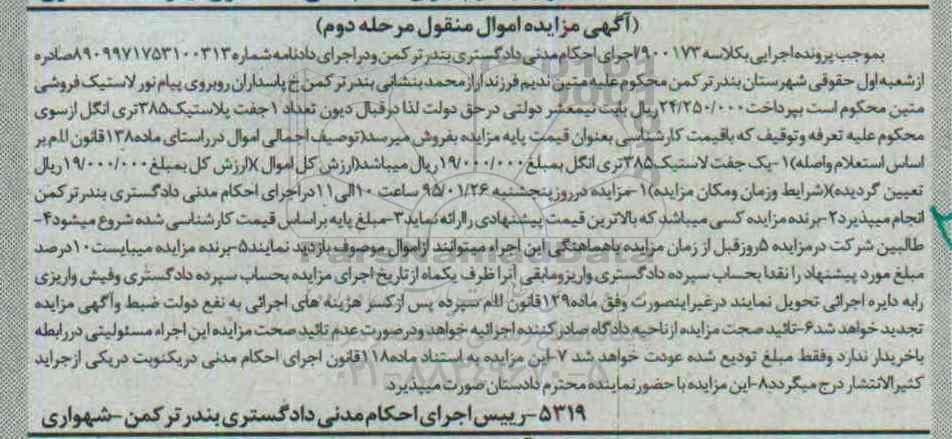 (آگهی مزایده اموال منقول مرحله دوم)
بموجب پرونده اجرایی بکلاسه ۹۰۰۱۷۳/اجرای احکام مدنی دادگستری بندر ترکمن ودر اجرای دادنامه شماره ۸۹۰۹۹۷۱۷۵۳۱۰۰۳۱۳صادره
از شعبه اول حقوقی شهرستان بندر ترکمن محکوم علیه متین ندیم فرزند اراز محمد بنشانی بندر ترکمن خ پاسداران روبروی پیام نور لاستیک فروشی
متین محکوم است بپرداخت ۲۴/۲۵۰/۰۰۰ریال بابت نیمعشر دولتی در حق دولت لذا در قبال دیون تعداد ۱جفت پلاستیک ۳۸۵تری انگل از سوی
محکوم علیه تعرفه وتوقیف که باقیمت کارشناسی بعنوان قیمت پایه مزایده بفروش میرسد(توصیف اجمالی اموال در راستای ماده ۱۳۸قانون ا.ا.م بر
اساس استعلام واصله)۱-یک جفت لاستیک ۳۸۵تری انگل بمبلغ ۱۹/۰۰۰/۰۰۰ریال میباشد(ارزش کل اموال)(ارزش کل بمبلغ ۱۹/۰۰۰/۰۰۰ریال
تعیین گردیده)(شرایط وزمان ومکان مزایده)۱-مزایده در روز پنجشنبه ۹۵/۰۱/۲۶ ساعت ۱۰الی ۱۱در اجرای احکام مدنی دادگستری بندر ترکمن
انجام میپذیرد۲-برنده مزایده کسی میباشد که بالاترین قیمت پیشنهادی را ارائه نماید۳-مبلغ پایه بر اساس قیمت کارشناسی شده شروع میشود۴-
طالبین شرکت در مزایده ۵روز قبل از زمان مزایده باهماهنگی این اجراء میتوانند از اموال موصوف بازدید نمایند۵-برنده مزایده میبایست ۱۰درصد
مبلغ مورد پیشنهاد را نقدا بحساب سپرده دادگستری واریز ومابقی آنرا ظرف یکماه از تاریخ اجرای مزایده بحساب سپرده دادگستری وفیش واریزی
رابه دایره اجرائی تحویل نمایند در غیر اینصورت وفق ماده ۱۲۹قانون ا.ا.م سپرده پس از کسر هزینه های اجرائی به نفع دولت ضبط وآگهی مزایده
تجدید خواهد شد۶-تائید صحت مزایده از ناحیه دادگاه صادر کننده اجرائیه خواهد ودر صورت عدم تائید صحت مزایده این اجراء مسئولیتی در رابطه
باخریدار ندارد وفقط مبلغ تودیع شده عودت خواهد شد ۷-این مزایده به استناد ماده ۱۱۸قانون اجرای احکام مدنی در یکنوبت در یکی از جراید
کثیر الانتشار درج میگردد۸-این مزایده با حضور نماینده محترم دادستان صورت میپذیرد.
۵۳۱۹-رییس اجرای احکام مدنی دادگستری بندر ترکمن-شهواری
ParsNamadData
۰۲۱-۸۸۳۴۹۶۷۰-۵